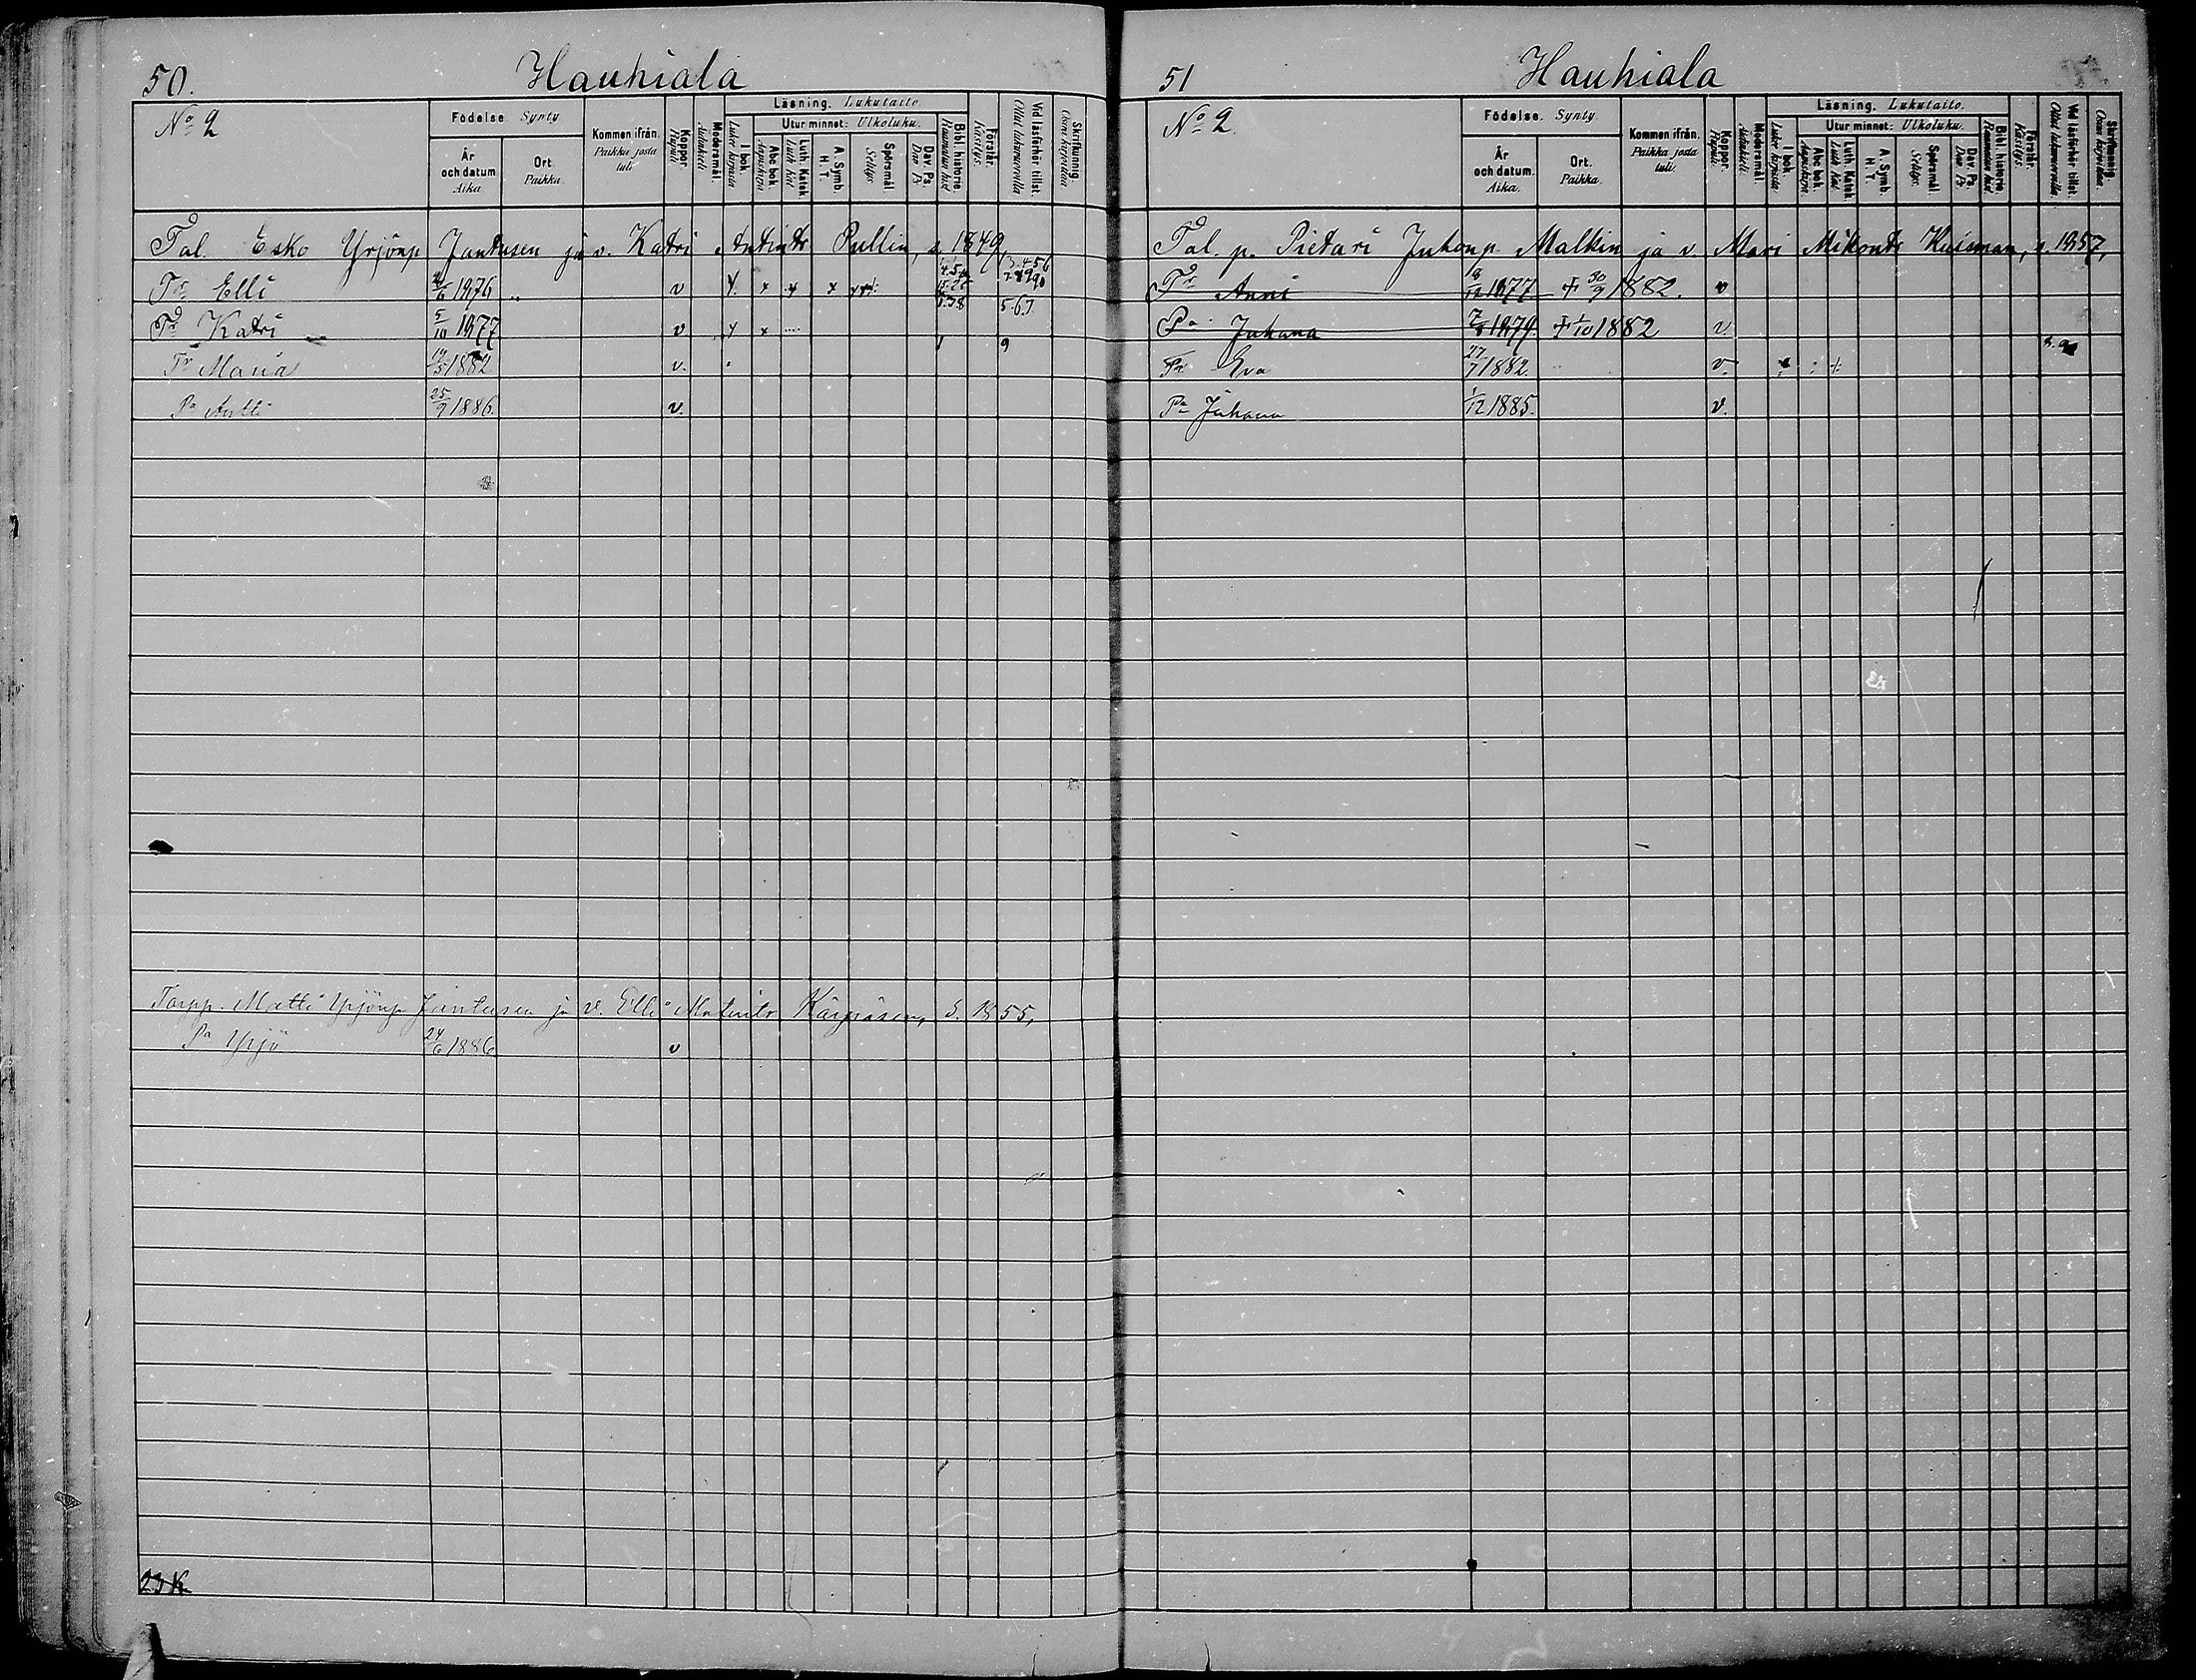 50. Hauhiala
No 2
Födelse Synty
År och datum Aika
Ort. Paikka.
Kommen ifrån. Paikka josta tuli
Koppor. Rupuli
Modersmål. Äidinkieli
Läsning. Lukutaito.
I bok. Lukee kirjasta
Utur minnet: Ulkoluku.
Abc bok. Aapiskirja
Luth. Katek. Luth Kat
A. Symb. H. T.
Spörsmål Selitys.
Dav. Ps. Dav Ps
Bibl. historie. Raamatun hist
Förstår. Käsitys.
Vid läsförhör tillst. Ollut lukuvuoroilla
Skrifkunnig.
Tal. Esko Yrjönp Jantusen ja v. Katri Antintr Pullin, s. 1849,
Tr Elli 6 1876 " v
Tr Katri 5/10 1877 v 5.6.7
Tr Maria 5 1882 v. 9
Pa Antti 25/9 1886. v.
Torpp. Matti Yrjönp Jantusen ja v. Elli Matintr Kärpäsen, s. 1855,
Pa Yrjö 24/6 1886 v
23 K
51 Hauhiala
No 2.
Födelse. Synty.
År och datum. Aika.
Ort. Paikka.
Kommen ifrån. Paikka josta tuli.
Koppor. Rupuli.
Modersmål. Äidinkieli.
Läsning. Lukutaito.
I bok. Lukee kirjasta
Utur minnet: Ulkoluku.
Abc bok. Aapiskirja.
Luth. Katek. Luth Kat
A. Symb. H. T.
Spörsmål. Selitys.
Dav. Ps. Dav Ps
Bibl. historie. Raamatun hist
Förstår. Käsitys.
Vid läsförhör tillst. Ollut lukuvuoroilla.
Skrifkunnig.
Tal. p. Pietari Juhonp Malkin ja v. Mari Mikontr Kuisman, s. 1857,
Tr Anni 1877 + 30/9 1882. v
Pa Juhana 7/8 1879 + 1/10 1882 v.
Tr Eva 27/7 1882. v.
Pa Juhana 1/12 1885. v.